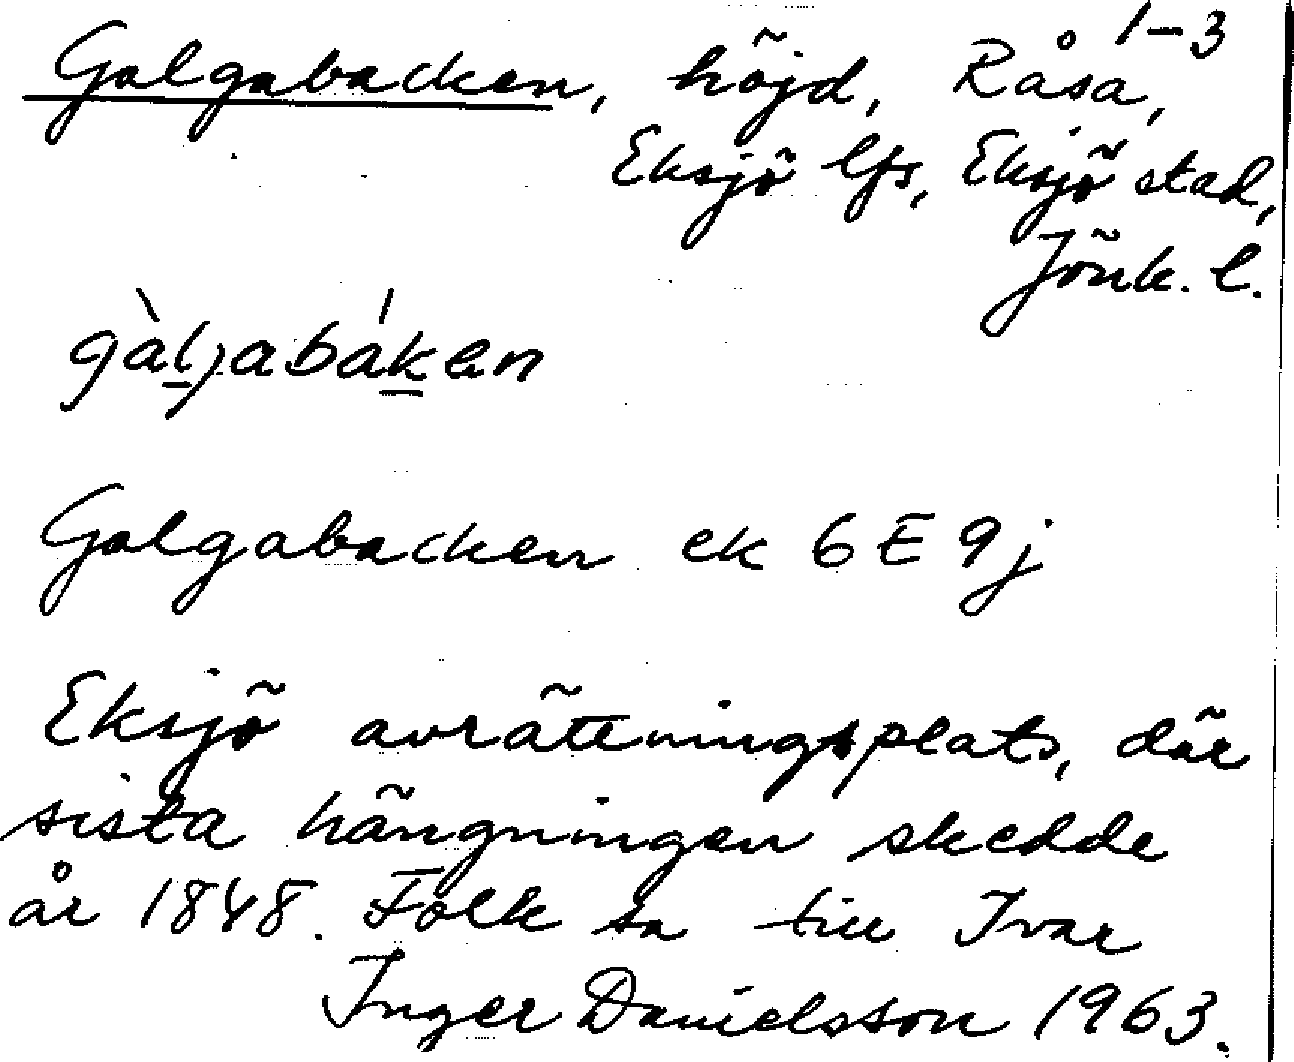 1-3
Galgabacken, höjd, Råsa,
Eksjö lfs, Eksjö stad,
Jönk. l.
gàljabáken
Galgabacken ek 6E9j
Eksjö avrättningsplats, där
sista hängningen skedde
år 1848. Folk sa till Ivar
Inger Danielsson 1963.